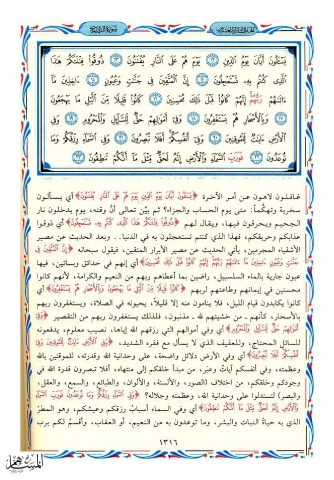 يَسْـَٔلُونَ أَيَّانَ يَوْمُ ٱلدِّينِ ۝١٢ يَوْمَ هُمْ عَلَى ٱلنَّارِ يُفْتَنُونَ ۝١٣ ذُوقُوا۟ فِتْنَتَكُمْ هَٰذَا
ٱلَّذِى كُنتُم بِهِۦ تَسْتَعْجِلُونَ ۝١٤ إِنَّ ٱلْمُتَّقِينَ فِى جَنَّٰتٍ وَعُيُونٍ ۝١٥ ءَاخِذِينَ مَآ
ءَاتَىٰهُمْ رَبُّهُمْ إِنَّهُمْ كَانُوا۟ قَبْلَ ذَٰلِكَ مُحْسِنِينَ ۝١٦ كَانُوا۟ قَلِيلًا مِّنَ ٱلَّيْلِ مَا يَهْجَعُونَ
۝١٧ وَبِٱلْأَسْحَارِ هُمْ يَسْتَغْفِرُونَ ۝١٨ وَفِىٓ أَمْوَٰلِهِمْ حَقٌّ لِّلسَّآئِلِ وَٱلْمَحْرُومِ ۝١٩ وَفِى
ٱلْأَرْضِ ءَايَٰتٌ لِّلْمُوقِنِينَ ۝٢٠ وَفِىٓ أَنفُسِكُمْ أَفَلَا تُبْصِرُونَ ۝٢١ وَفِى ٱلسَّمَآءِ رِزْقُكُمْ وَمَا
تُوعَدُونَ ۝٢٢ فَوَرَبِّ ٱلسَّمَآءِ وَٱلْأَرْضِ إِنَّهُۥ لَحَقٌّ مِّثْلَ مَآ أَنَّكُمْ تَنطِقُونَ ۝٢٣
غافلون لاهون عن أمر الآخرة ﴿يَسْـَٔلُونَ أَيَّانَ يَوْمُ ٱلدِّينِ يَوْمَ هُمْ عَلَى ٱلنَّارِ يُفْتَنُونَ﴾ أي يسألون
سخرية وتهكماً: متى يوم الحساب والجزاء؟ ثم بيَّن تعالى أنَّ وقته، يوم يدخلون نار
الجحيم ويحرقون فيها، ويقال لهم ﴿ذُوقُوا۟ فِتْنَتَكُمْ هَٰذَا ٱلَّذِى كُنتُم بِهِۦ تَسْتَعْجِلُونَ﴾ أي ذوقوا
عذابكم وحريقكم، فهذا الذي كنتم تستعجلون به في الدنيا.. وبعد الحديث عن مصير
الأشقياء المجرمين، يأتي الحديث عن مصير الأبرار المتقين، فيقول سبحانه ﴿إِنَّ ٱلْمُتَّقِينَ فِى
جَنَّٰتٍ وَعُيُونٍ ءَاخِذِينَ مَآ ءَاتَىٰهُمْ رَبُّهُمْ إِنَّهُمْ كَانُوا۟ قَبْلَ ذَٰلِكَ مُحْسِنِينَ﴾ أي إنهم في حدائق وبساتين، فيها
عيون جارية بالماء السلسبيل، راضين بما أعطاهم ربهم من النعيم والكرامة، لأنهم كانوا
محسنين في إيمانهم وطاعتهم لربهم ﴿كَانُوا۟ قَلِيلًا مِّنَ ٱلَّيْلِ مَا يَهْجَعُونَ وَبِٱلْأَسْحَارِ هُمْ يَسْتَغْفِرُونَ﴾ أي
كانوا يكابدون قيام الليل، فلا ينامون منه إلا قليلاً، يحيونه في الصلاة، ويستغفرون ربهم
بالأسحار، كأنهم ـ من خشيتهم لله ـ مذنبون، فلذلك يستغفرون ربهم من التقصير ﴿وَفِىٓ
أَمْوَٰلِهِمْ حَقٌّ لِّلسَّآئِلِ وَٱلْمَحْرُومِ﴾ أي وفي أموالهم التي رزقهم الله إياها، نصيب معلوم، يدفعونه
للسائل المحتاج، وللعفيف الذي لا يسأل مع فقره الشديد، ﴿وَفِى ٱلْأَرْضِ ءَايَٰتٌ لِّلْمُوقِنِينَ وَفِىٓ
أَنفُسِكُمْ أَفَلَا تُبْصِرُونَ﴾ أي وفي الأرض دلائل واضحة، على وحدانية الله وقدرته، للموقنين بالله
وعظمته، وفي أنفسكم آيات وعبر، من مبدأ خلقكم إلى منتهاه، أفلا تبصرون قدرة الله في
وجودكم وخلقكم، من اختلاف (الصور، والألسنة، والألوان، والطبائع، والسمع، والعقل،
والبصر) لتستدلوا على وحدانية الله، وعظمته وجلاله؟ ﴿وَفِى ٱلسَّمَآءِ رِزْقُكُمْ وَمَا تُوعَدُونَ فَوَرَبِّ ٱلسَّمَآءِ
وَٱلْأَرْضِ إِنَّهُۥ لَحَقٌّ مِّثْلَ مَآ أَنَّكُمْ تَنطِقُونَ﴾ أي وفي السماء، أسباب رزقكم وعيشكم، وهو المطر
الذي به حياة النبات والبشر، وما توعدون به من النعيم، أو العقاب، وأقسم لكم برب
١٣١٦